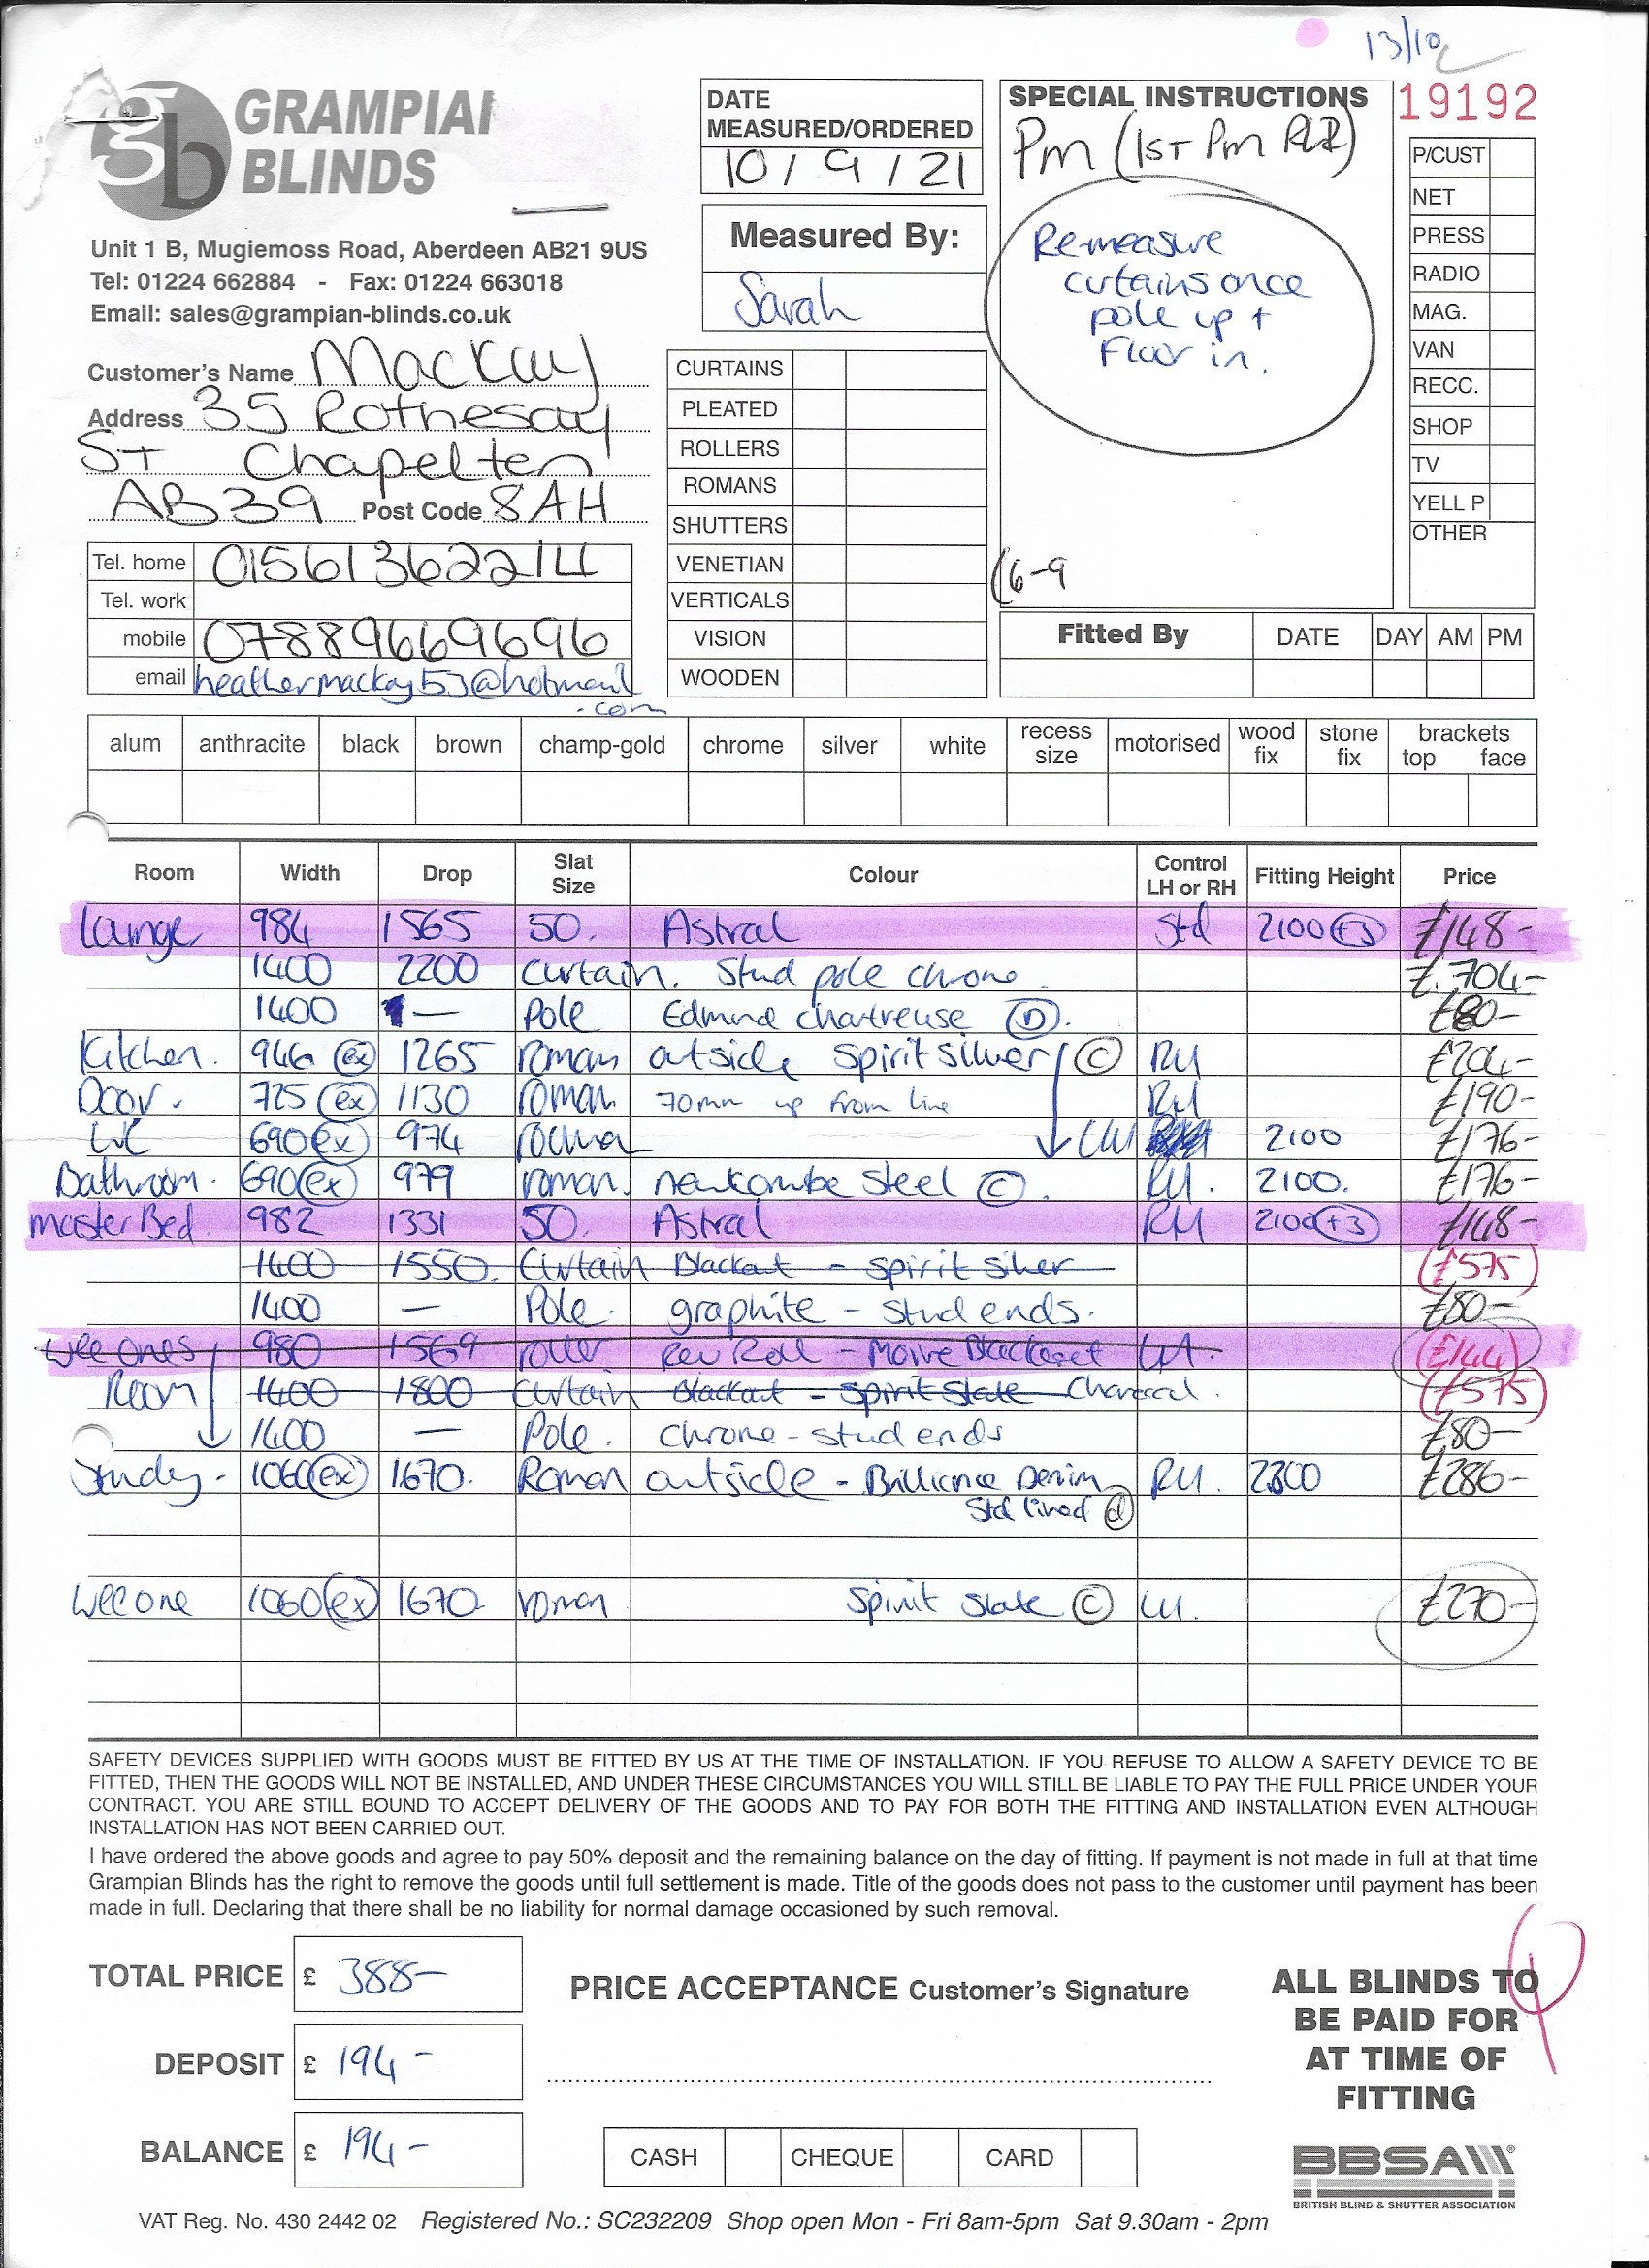 13/10
GRAMPIAN
BLINDS
Unit 1 B, Mugiemoss Road, Aberdeen AB21 9US
Tel: 01224 662884 - Fax: 01224 663018
Email: sales@grampian-blinds.co.uk
Customer's Name Mackay
Address 35 Rothesay
ST Chapelton
AB39 Post Code 8AH
Tel. home 01561362214
Tel. work
mobile 07889669696
email heathermackay53@hotmail
.com
DATE
MEASURED/ORDERED
10/9/21
Measured By:
Sarah
CURTAINS
PLEATED
ROLLERS
ROMANS
SHUTTERS
VENETIAN
VERTICALS
VISION
WOODEN
SPECIAL INSTRUCTIONS
Pm (1ST Pm PLZ)
Re-measure
curtains once
pole up +
Floor in.
(6-9
19192
P/CUST
NET
PRESS
RADIO
MAG.
VAN
RECC.
SHOP
TV
YELL P
OTHER
Fitted By DATE DAY AM PM
alum anthracite black brown champ-gold chrome silver white recess size motorised wood fix stone fix brackets top face
Room Width Drop Slat Size Colour Control LH or RH Fitting Height Price
Lounge 984 1565 50. Astral Std 2100 +3 £148-
1400 2200 Curtain. Stud pole chrome. £704-
1400 — Pole Edmund chartreuse (D). £80-
Kitchen. 946 (ex) 1265 roman outside spirit silver (C) RH £204-
Door. 725 (ex) 1130 roman 70mm up from line RH £190-
WC 690 (ex) 974 roman LH 2100 £176-
Bathroom. 690 (ex) 979 roman. newcombe steel (C). RH. 2100. £176-
master Bed 982 1331 50. Astral RH 2100 (+3) £148-
1400 1550. Curtain Blackout - spirit silver (£575)
1400 — Pole. graphite - stud ends. £80-
wee ones 980 1569 roller Rev Roll - Moire Blackout LH. (£144)
Room 1400 1800 Curtain Blackout - spirit slate Charcoal. (£575)
1400 — Pole. chrome - stud ends £80-
Study - 1060 (ex) 1670. Roman outside - Brilliance Denim RH. 2300 £286-
Std lined (d)
wee one 1060 (ex) 1670 roman Spirit Slate (C) LH. £270-
SAFETY DEVICES SUPPLIED WITH GOODS MUST BE FITTED BY US AT THE TIME OF INSTALLATION. IF YOU REFUSE TO ALLOW A SAFETY DEVICE TO BE
FITTED, THEN THE GOODS WILL NOT BE INSTALLED, AND UNDER THESE CIRCUMSTANCES YOU WILL STILL BE LIABLE TO PAY THE FULL PRICE UNDER YOUR
CONTRACT. YOU ARE STILL BOUND TO ACCEPT DELIVERY OF THE GOODS AND TO PAY FOR BOTH THE FITTING AND INSTALLATION EVEN ALTHOUGH
INSTALLATION HAS NOT BEEN CARRIED OUT.
I have ordered the above goods and agree to pay 50% deposit and the remaining balance on the day of fitting. If payment is not made in full at that time
Grampian Blinds has the right to remove the goods until full settlement is made. Title of the goods does not pass to the customer until payment has been
made in full. Declaring that there shall be no liability for normal damage occasioned by such removal.
TOTAL PRICE £ 388-
DEPOSIT £ 194-
BALANCE £ 194-
PRICE ACCEPTANCE Customer's Signature
CASH CHEQUE CARD
ALL BLINDS TO
BE PAID FOR
AT TIME OF
FITTING
BBSA
BRITISH BLIND & SHUTTER ASSOCIATION
VAT Reg. No. 430 2442 02 Registered No.: SC232209 Shop open Mon - Fri 8am-5pm Sat 9.30am - 2pm